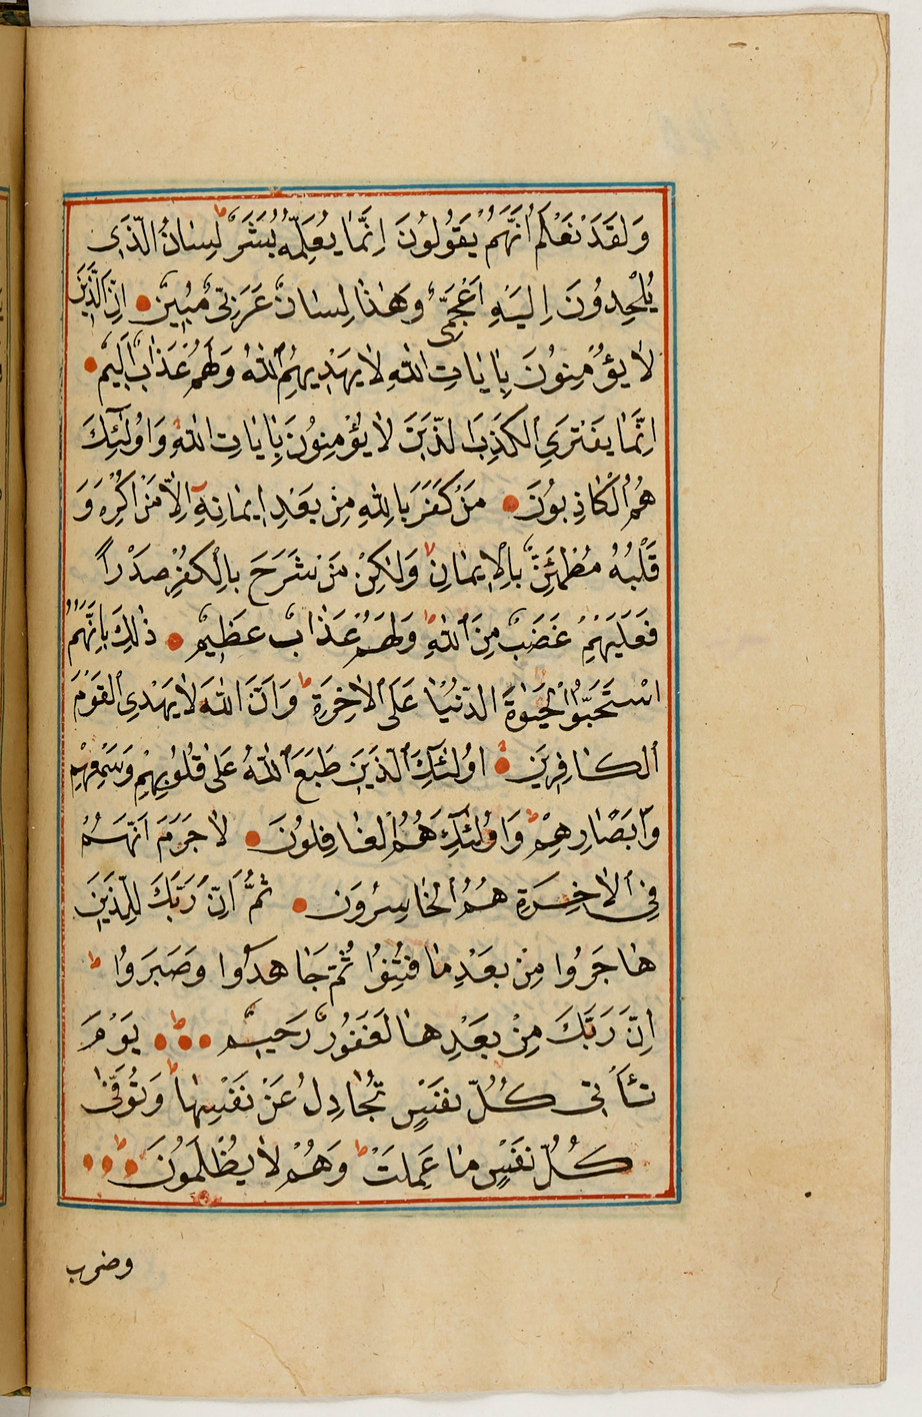 وَلَقَدْ نَعْلَمُ أَنَّهُمْ يَقُولُونَ اِنَّمَا يُعَلِّمُهُ بَشَرٌ ط لِسَانُ الَّذِى
يُلْحِدُونَ اِلَيْهِ اَعْجَمِىٌّ وَهٰذَا لِسَانٌ عَرَبِىٌّ مُبِينٌ اِنَّ الَّذِينَ
لَا يُؤْمِنُونَ بِاٰيَاتِ اللّٰهِ لَا يَهْدِيهِمُ اللّٰهُ وَلَهُمْ عَذَابٌ اَلِيمٌ
اِنَّمَا يَفْتَرِي الْكَذِبَ الَّذِينَ لَا يُؤْمِنُونَ بِاٰيَاتِ اللّٰهِ وَاُولٰئِكَ
هُمُ الْكَاذِبُونَ مَنْ كَفَرَ بِاللّٰهِ مِنْ بَعْدِ اِيمَانِهِٓ اِلَّا مَنْ اُكْرِهَ وَ
قَلْبُهُ مُطْمَئِنٌّ بِالْاِيمَانِ وَلٰكِنْ مَنْ شَرَحَ بِالْكُفْرِ صَدْرًا
فَعَلَيْهِمْ غَضَبٌ مِنَ اللّٰهِ وَلَهُمْ عَذَابٌ عَظِيمٌ ذٰلِكَ بِاَنَّهُمُ
اسْتَحَبُّوا الْحَيٰوةَ الدُّنْيَا عَلَى الْاٰخِرَةِ ط وَاَنَّ اللّٰهَ لَا يَهْدِى الْقَوْمَ
الْكَافِرِينَ اُولٰئِكَ الَّذِينَ طَبَعَ اللّٰهُ عَلٰى قُلُوبِهِمْ وَسَمْعِهِمْ
وَاَبْصَارِهِمْ ط وَاُولٰئِكَ هُمُ الْغَافِلُونَ لَا جَرَمَ اَنَّهُمْ
فِى الْاٰخِرَةِ هُمُ الْخَاسِرُونَ ثُمَّ اِنَّ رَبَّكَ لِلَّذِينَ
هَاجَرُوا مِنْ بَعْدِ مَا فُتِنُوا ثُمَّ جَاهَدُوا وَصَبَرُوا ط
اِنَّ رَبَّكَ مِنْ بَعْدِهَا لَغَفُورٌ رَحِيمٌ ط يَوْمَ
تَأْتِى كُلُّ نَفْسٍ تُجَادِلُ عَنْ نَفْسِهَا ط وَتُوَفّٰى
كُلُّ نَفْسٍ مَا عَمِلَتْ ط وَهُمْ لَا يُظْلَمُونَ ط
وضرب